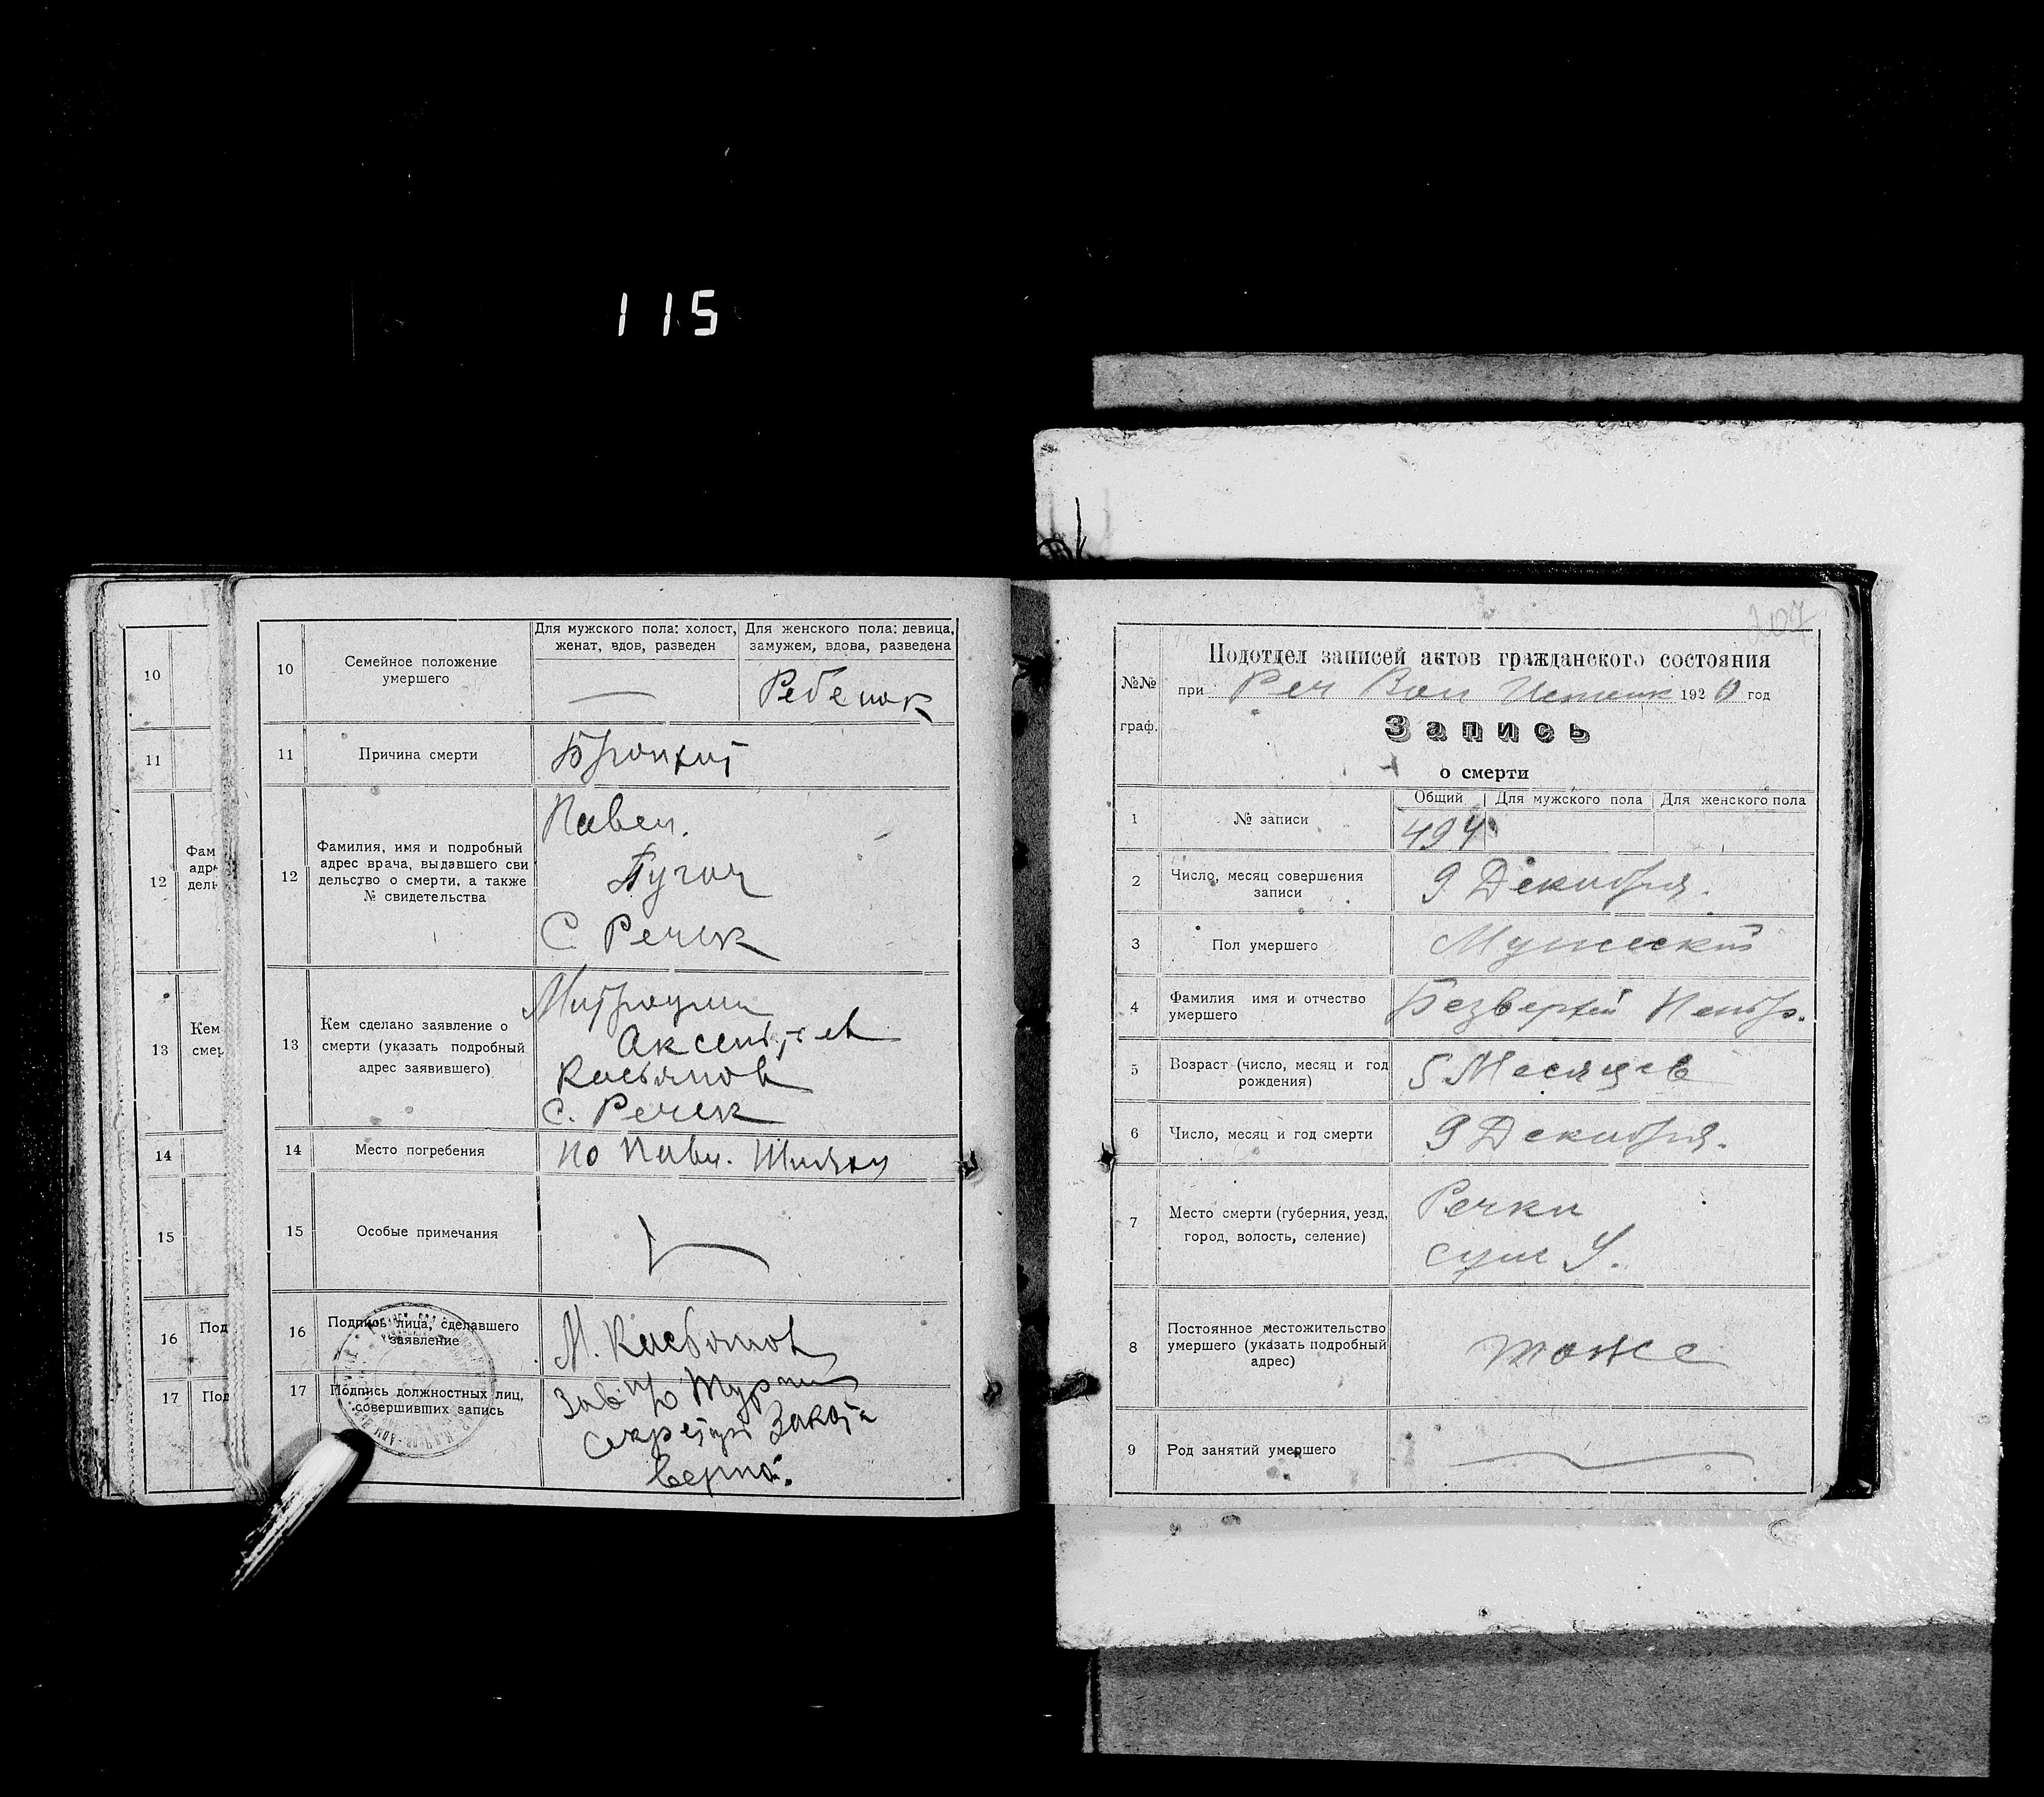 115
10
11
12
Фам
адре
дель
13
Кем
смер
14
15
16 Под
17 Под
10 Семейное положение умершего
Для мужского пола: холост, женат, вдов, разведен
Для женского пола: девица, замужем, вдова, разведена
Ребенок
11 Причина смерти
Бронхит
12 Фамилия, имя и подробный
адрес врача, выдавшего сви
дельство о смерти, а также
№ свидетельства
Павел.
С. Речек
13 Кем сделано заявление о
смерти (указать подробный
адрес заявившего)
Митрофан
Аксентьев
Касьянов
С. Речек
14 Место погребения
15 Особые примечания
16 Подпись лица, сделавшего
заявление
М. Касьянов
17 Подпись должностных лиц,
совершивших запись
Зав п/о
Секретарь
Верно:
207
№№
граф.
Подотдел записей актов гражданского состояния
при Реч Вол Исполк 1920 год
Запись
о смерти
1 № записи
Общий Для мужского пола Для женского пола
494
2 Число, месяц совершения
записи
9 Декабря.
3 Пол умершего
Мужеский
4 Фамилия имя и отчество
умершего
Безверхий
5 Возраст (число, месяц и год
рождения)
5 Месяцев
6 Число, месяц и год смерти
9 Декабря.
7 Место смерти (губерния, уезд,
город, волость, селение)
Речки
сум У.
8 Постоянное местожительство
умершего (указать подробный
адрес)
тоже
9 Род занятий умершего